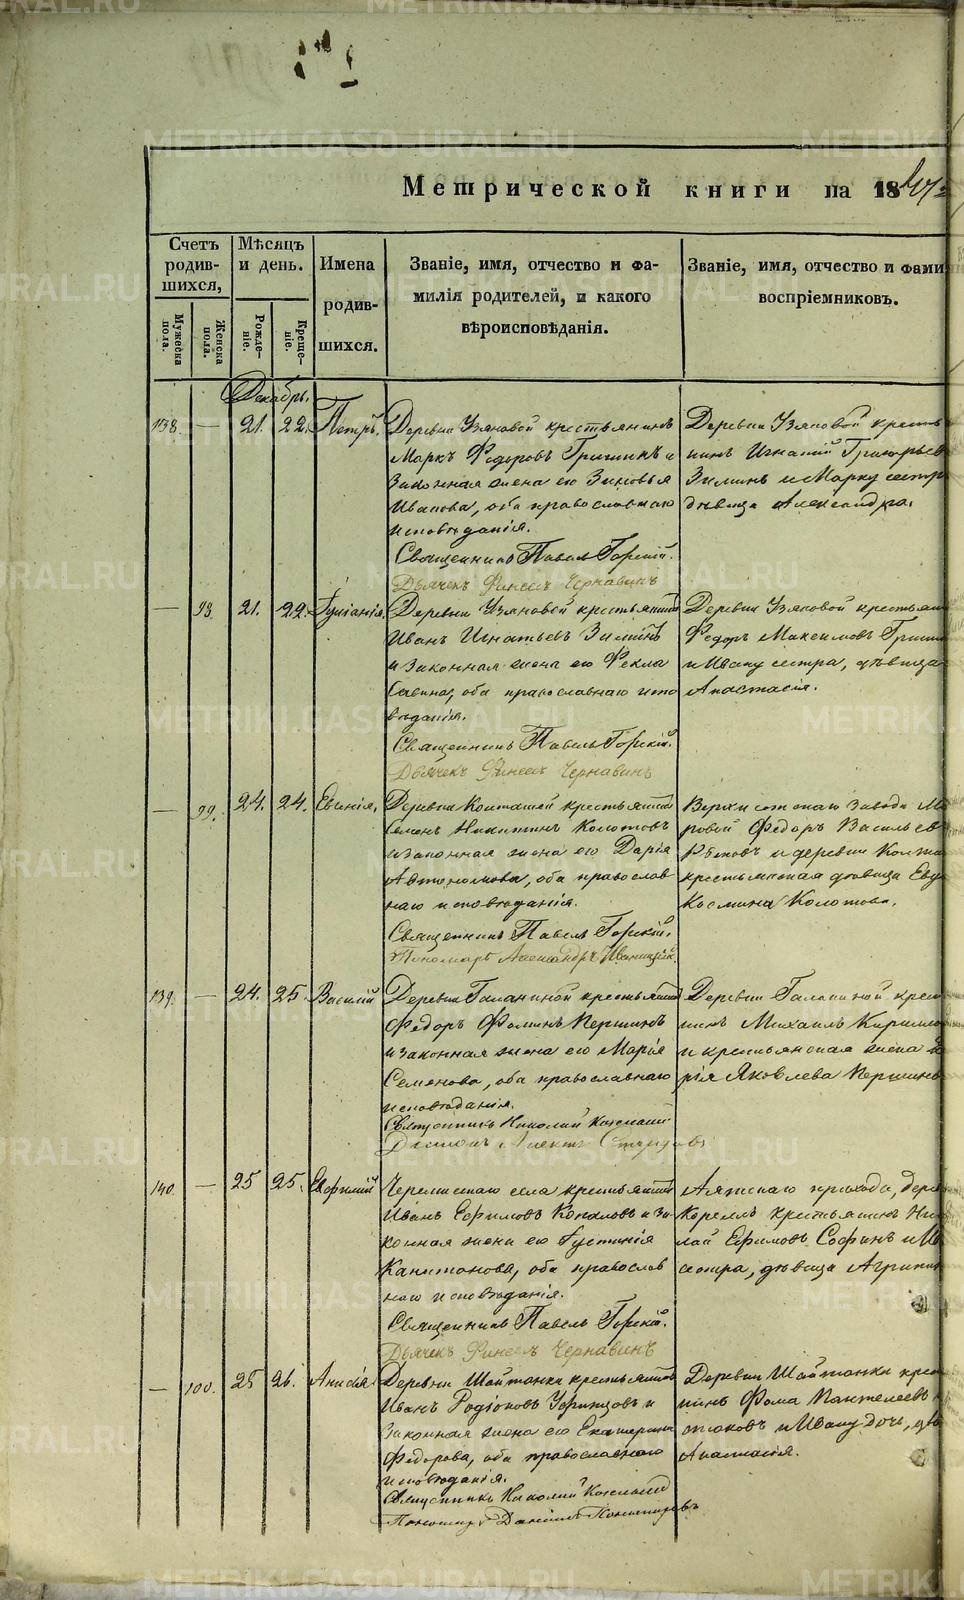 Метрической книги на 1847
Счетъ родившихся,
Мѣсяцъ и день.
Имена родившихся.
Званіе, имя, отчество и фамилія родителей, и какого вѣроисповѣданія.
Званіе, имя, отчество и фами
воспріемниковъ.
Мужеска пола.
Женска пола.
Рожденіе.
Крещеніе.
Декабрь.
138. — 21. 22. Петръ.
Деревни Узяновой крестьянинъ
Маркъ Федоровъ Гришинъ и
законная жена его Зиновья
Иванова, оба православнаго
исповѣданія.
Священникъ Павелъ Горскій.
Дьячекъ Финеесъ Чернавинъ
Деревни Узяновой кресть
нинъ Игнатій Григорьев
Зиминъ и Марку сестр
дѣвица Александра.
— 98. 21. 22. Іуліанія.
Деревни Узяновой крестьянинъ
Иванъ Игнатьевъ Зиминъ
и законная жена его Фекла
Савина, оба православнаго испо
вѣданія.
Священникъ Павелъ Горскій.
Дьячекъ Финеесъ Чернавинъ
Деревни Узяновой крестьян
Федоръ Максимовъ Гриши
и Ивану сестра, дѣвица
Анастасія.
— 99. 24. 24. Евгенія.
Деревни Колташей крестьянинъ
Семенъ Никитинъ Колотовъ
и законная жена его Дарія
Автономова, оба православ
наго исповѣданія.
Священникъ Павелъ Горскій.
Пономарь Александръ
Верхисетскаго завода Ма
ровой Федоръ Васильев
и деревни Колта
крестьянская дѣвица Евд
Космина Колотова.
139. — 24. 25. Василій
Деревни Галаниной крестьянинъ
Федоръ Фоминъ Першинъ
и законная жена его Марія
Семенова, оба православнаго
исповѣданія.
Священникъ Николай
Деревни Галаниной крес
нинъ Михаилъ Кирилло
и крестьянская жена
рія Яковлева Першин
140. — 25 25. Евфимій
Черемисскаго села крестьянинъ
Иванъ Ефимовъ Копаловъ и за
конная жена его Іустинія
Капитонова, оба православ
наго исповѣданія.
Священникъ Павелъ Горскій.
Дьячекъ Финеесъ Чернавинъ
Аятскаго прихода, дере
Корелъ крестьянинъ Ник
лай Ефимовъ Софинъ и Ив
сестра, дѣвица Агрипин
— 100. 25 26. Анисія.
Деревни Шайтанки крестьянинъ
Иванъ Родіоновъ и
законная жена его Екатерина
Федорова, оба православнаго
исповѣданія.
Священникъ Николай
Пономарь Даніилъ Пономаревъ
Деревни Шайтанки крес
нинъ Фома Пантелеевъ
и Ивану дочь, дѣв
Анастасія.
METRIKI.GASO-URAL.RU